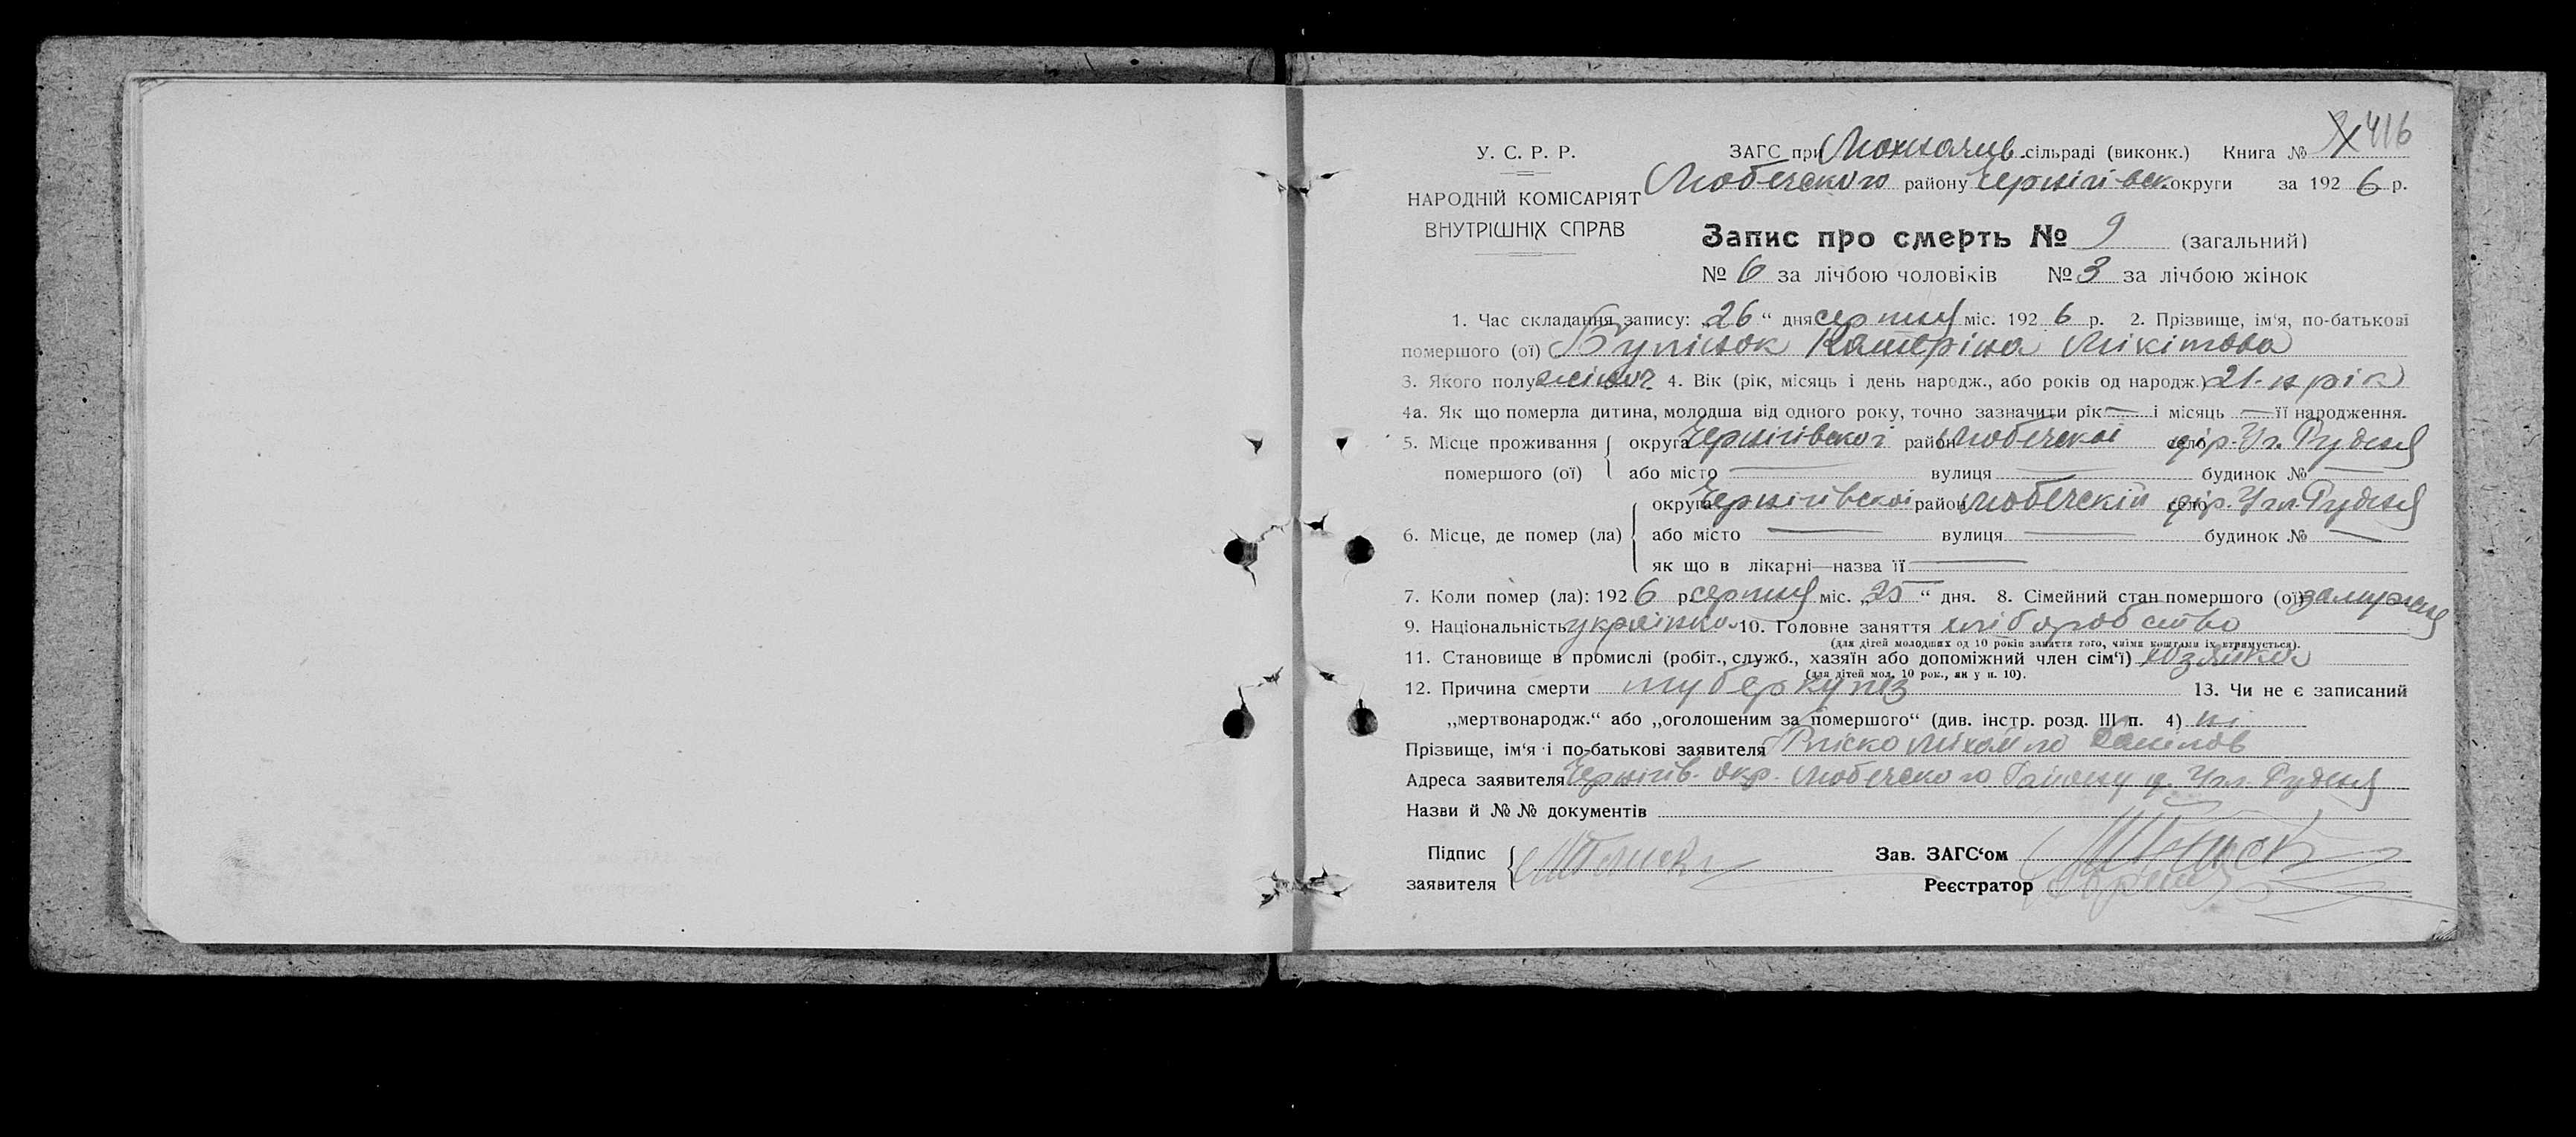 416
У. С. Р. Р. ЗАГС при сільраді (виконк.) Книга №
Любечского району Чернігівск. округи за 1926 р.
НАРОДНІЙ КОМІСАРІЯТ
ВНУТРІШНІХ СПРАВ
Запис про смерть № 9 (загальний)
№ 6 за лічбою чоловіків № 3 за лічбою жінок
1. Час складання запису: „26“ дня серпня міс. 1926 р. 2. Прізвище, ім‘я, по-батькові
помершого (ої) Катеріна Мікітова
3. Якого полу жіноч 4. Вік (рік, місяць і день народж., або років од народж.) 21-н рік
4а. Як що померла дитина, молодша від одного року, точно зазначити рік — і місяць — її народження.
5. Місце проживання округа Чернігівскої район Любечскої село Рудня
помершого (ої) або місто — вулиця — будинок № —
округа Чернігівскої район Любечский село Рудня
6. Місце, де помер (ла) або місто — вулиця — будинок № —
як що в лікарні—назва її —
7. Коли помер (ла): 1926 р. серпня міс. „25“ дня. 8. Сімейний стан помершого (ої) замужня
9. Національність українка 10. Головне заняття хліборобство
(для дітей молодших од 10 років заняття того, чиїми коштами їх втримується).
11. Становище в промислі (робіт., служб., хазяїн або допоміжний член сім‘ї) хозяйка
(для дітей мол. 10 рок., як у п. 10).
12. Причина смерти туберкулез 13. Чи не є записаний
„мертвонародж.“ або „оголошеним за помершого“ (див. інстр. розд. III п. 4) ні
Прізвище, ім‘я і по-батькові заявителя Міхайло
Адреса заявителя Чернігів. окр. Любечского Району Рудня
Назви й № № документів
Підпис Зав. ЗАГС‘ом
заявителя Реєстратор